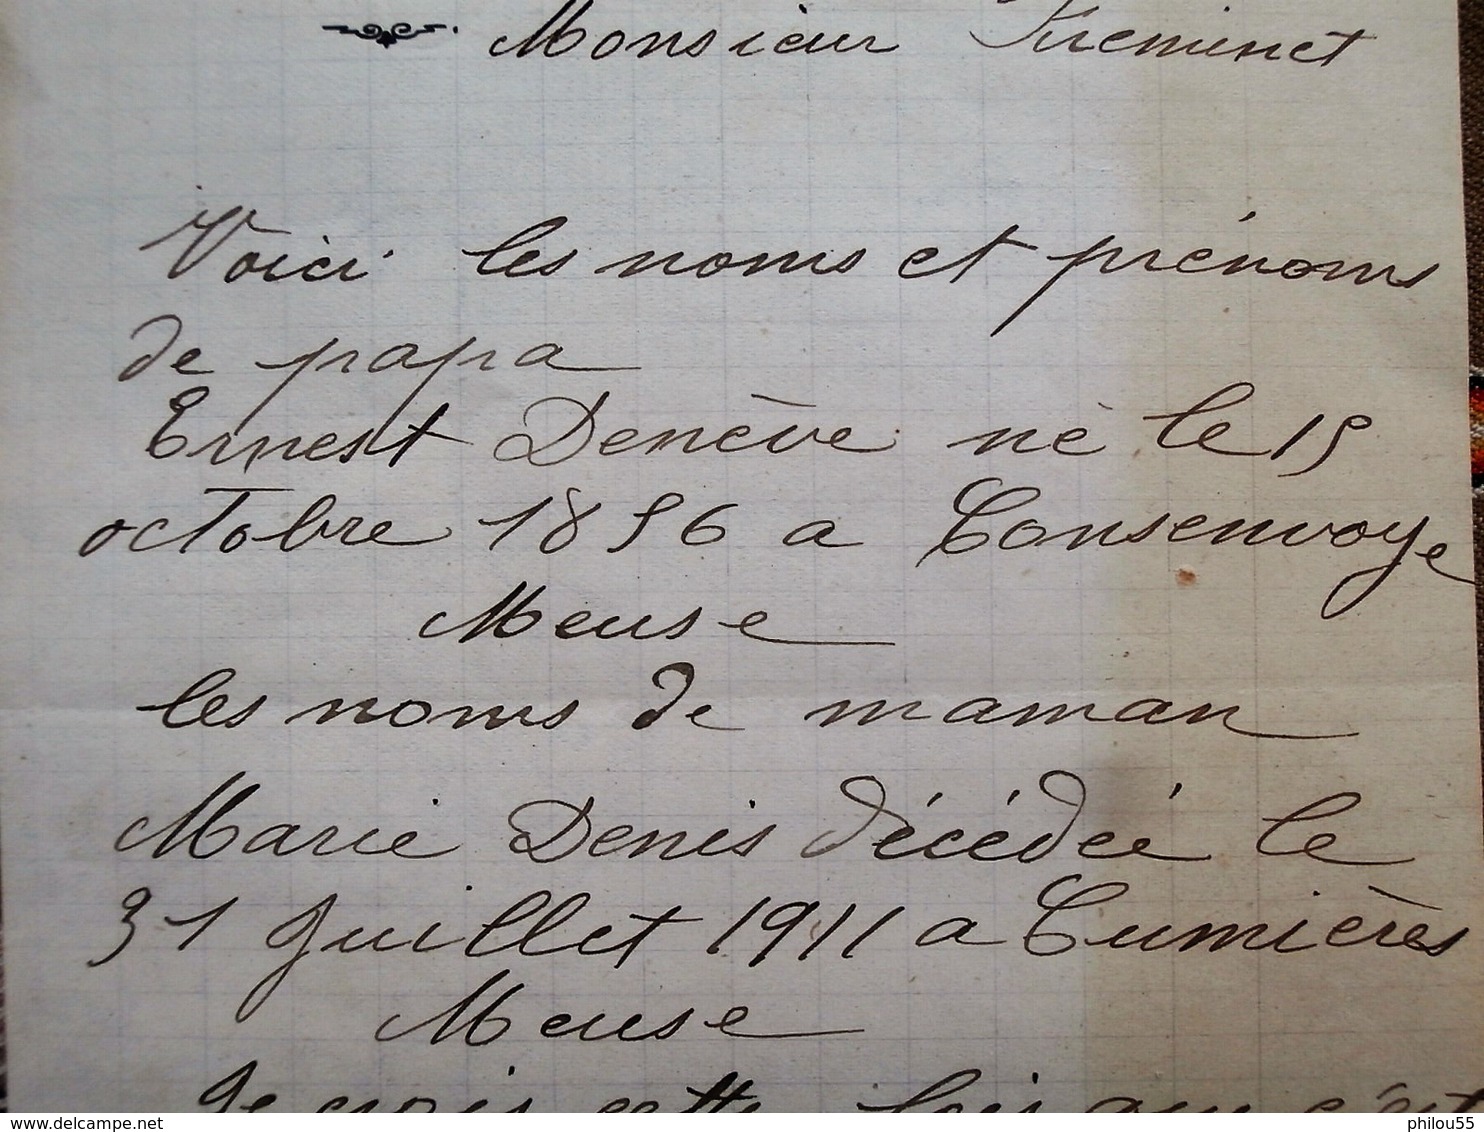 Monsieur Freminet
Voici les noms et prénoms
de papa
Ernest Denève né le 15
octobre 1856 a Consenvoye
Meuse
les noms de maman
Marie Denis décédée le
31 Juillet 1911 a Cumières
Meuse
Je crois cette fois que c'est
www.delcampe.net
philou55